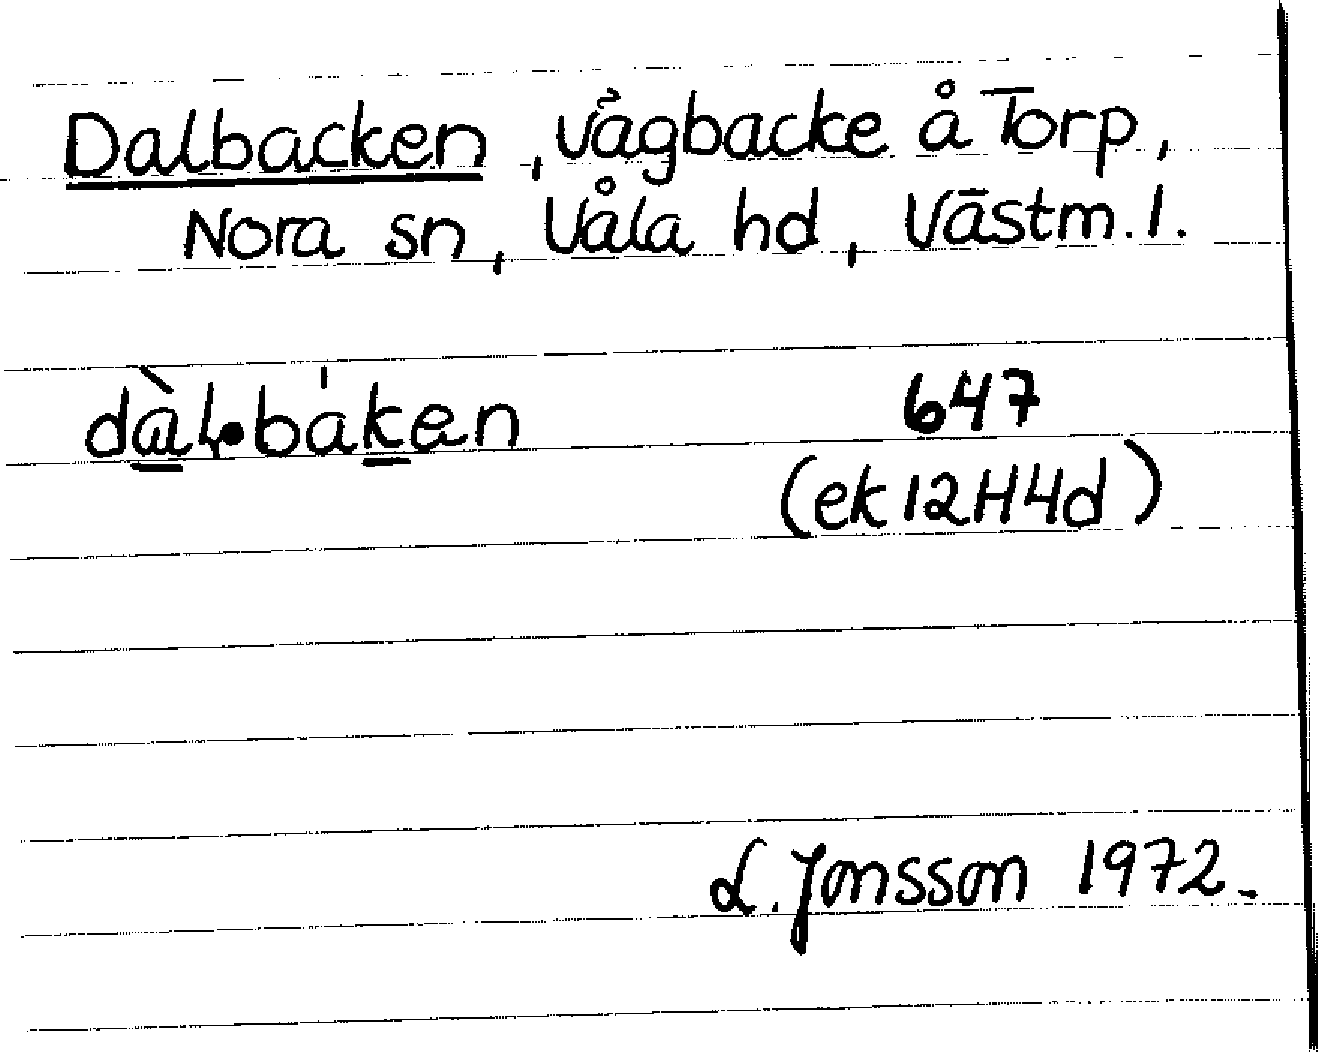 Dalbacken, vägbacke å Torp,
Nora sn, Våla hd, Västm. l.
dàl•báken 647
(ek 12H4d)
L. Jonsson 1972.